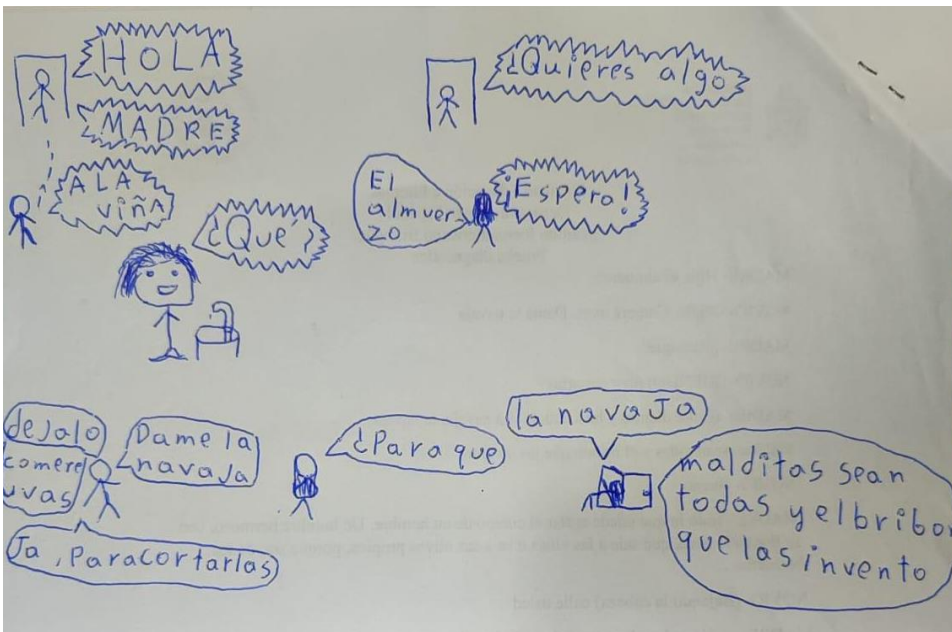 HOLA
MADRE
A LA
viñA
¿Qué?
¿Quieres algo
¡Espero!
El
almuer
zo
dejalo
comere
uvas
Dame la
navaja
Ja, para cortarlas
¿Para que
la navaja
malditas sean
todas y el bribon
que las invento